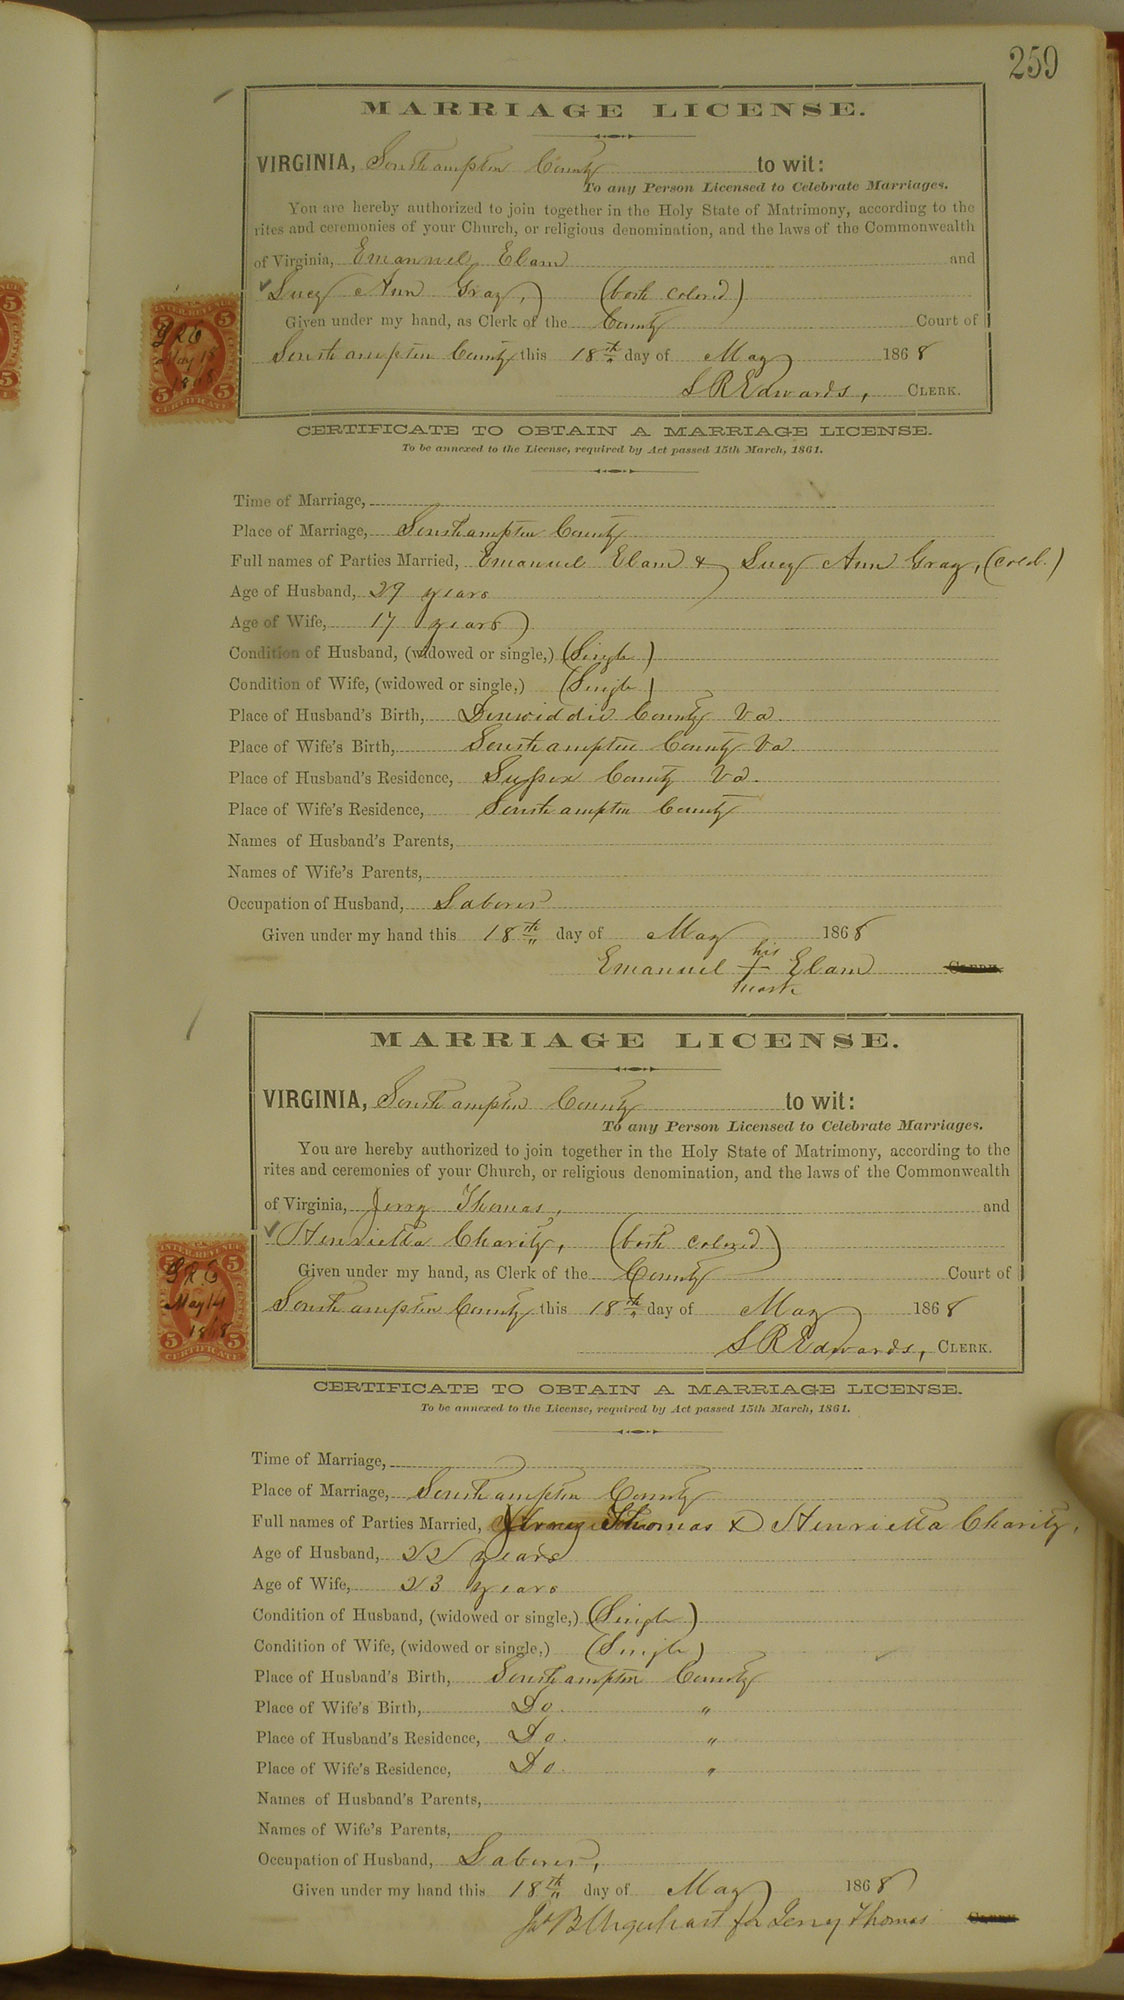 259
MARRIAGE LICENSE.
VIRGINIA, Southampton County to wit:
To any Person Licensed to Celebrate Marriages.
You are hereby authorized to join together in the Holy State of Matrimony, according to the
rites and ceremonies of your Church, or religious denomination, and the laws of the Commonwealth
of Virginia, Emanuel Elam and
Lucy Ann Gray, (both colored)
Given under my hand, as Clerk of the County Court of
Southampton County this 18th day of May 1868
S R Edwards, CLERK.
INTER. REVENUE
5 5
S R E
May 18
1868
5 5
CERTIFICATE
CERTIFICATE TO OBTAIN A MARRIAGE LICENSE.
To be annexed to the License, required by Act passed 15th March, 1861.
Time of Marriage,
Place of Marriage, Southampton County
Full names of Parties Married, Emanuel Elam & Lucy Ann Gray, (cold.)
Age of Husband, 29 years
Age of Wife, 17 years
Condition of Husband, (widowed or single,) (Single)
Condition of Wife, (widowed or single,) (Single)
Place of Husband's Birth, Dinwiddie County Va.
Place of Wife's Birth, Southampton County Va
Place of Husband's Residence, Sussex County Va.
Place of Wife's Residence, Southampton County
Names of Husband's Parents,
Names of Wife's Parents,
Occupation of Husband, Laborer
Given under my hand this 18th day of May 1868
Emanuel his + mark Elam CLERK.
MARRIAGE LICENSE.
VIRGINIA, Southampton County to wit:
To any Person Licensed to Celebrate Marriages.
You are hereby authorized to join together in the Holy State of Matrimony, according to the
rites and ceremonies of your Church, or religious denomination, and the laws of the Commonwealth
of Virginia, Jerry Thomas, and
Henrietta Charity, (both colored)
Given under my hand, as Clerk of the County Court of
Southampton County this 18th day of May 1868
S R Edwards, CLERK.
INTER. REVENUE
5 5
S R E
May 14
1868
5 5
CERTIFICATE
CERTIFICATE TO OBTAIN A MARRIAGE LICENSE.
To be annexed to the License, required by Act passed 15th March, 1861.
Time of Marriage,
Place of Marriage, Southampton County
Full names of Parties Married, Jerry Thomas & Henrietta Charity,
Age of Husband, 22 years
Age of Wife, 23 years
Condition of Husband, (widowed or single,) (Single)
Condition of Wife, (widowed or single,) (Single)
Place of Husband's Birth, Southampton County
Place of Wife's Birth, Do. "
Place of Husband's Residence, Do. "
Place of Wife's Residence, Do. "
Names of Husband's Parents,
Names of Wife's Parents,
Occupation of Husband, Laborer,
Given under my hand this 18th day of May 1868
Jas B Urquhart for Jerry Thomas CLERK